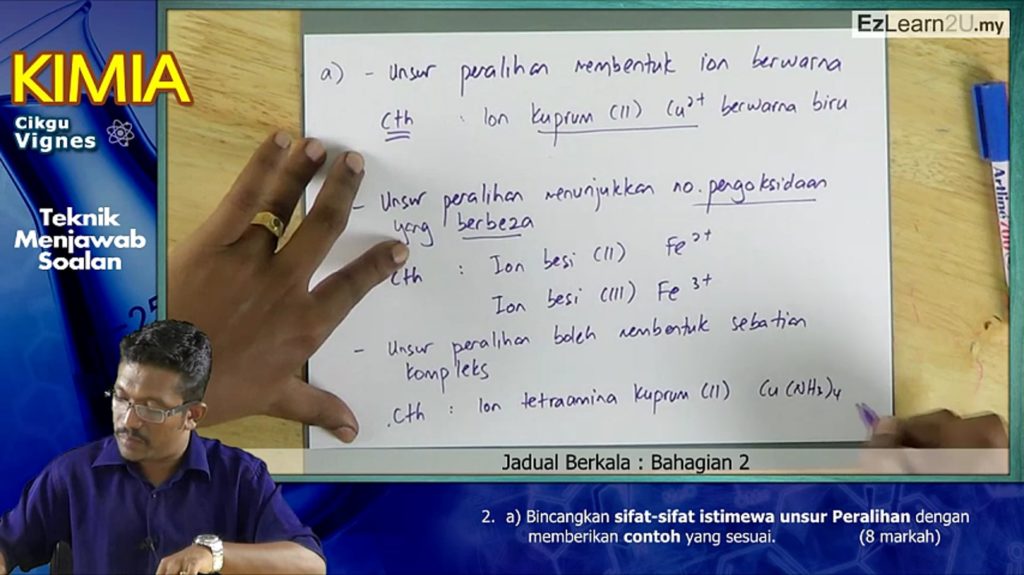 EzLearn2U.my
KIMIA
Cikgu
Vignes
Teknik
Menjawab
Soalan
a) - Unsur peralihan membentuk ion berwarna
Cth : Ion Kuprum (II) Cu²⁺ berwarna biru
- Unsur peralihan menunjukkan no. pengoksidaan
yang berbeza
Cth : Ion besi (II) Fe²⁺
Ion besi (III) Fe³⁺
- Unsur peralihan boleh membentuk sebatian
kompleks
Cth : Ion tetraamina kuprum (II) Cu(NH₃)₄
Artline
Jadual Berkala : Bahagian 2
2. a) Bincangkan sifat-sifat istimewa unsur Peralihan dengan
memberikan contoh yang sesuai. (8 markah)